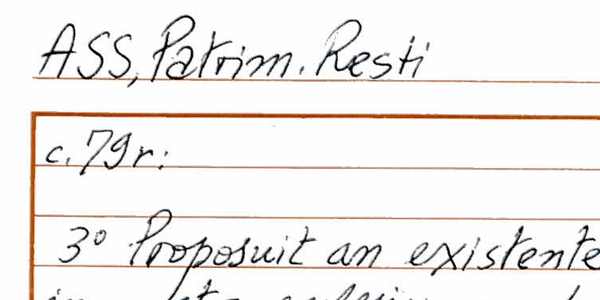 ASS, Patrim. Resti
c. 79r:
3° Proposuit an existente